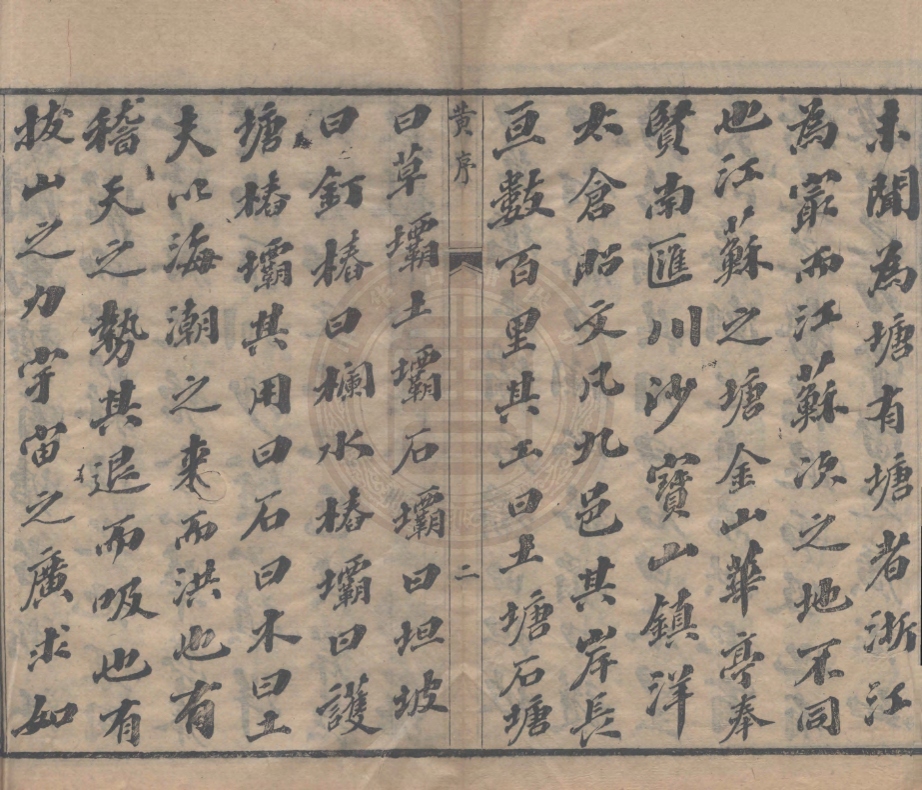 未聞為塘有塘者浙江
為最而江蘇次之地不同
也江蘇之塘金山華亭奉
賢南匯川沙寶山鎮洋
太倉昭文凡九邑其岸長
亘數百里其工曰土塘石塘
黄序
二
曰草壩土壩石壩曰坦坡
曰釘樁曰欄水樁壩曰護
塘樁壩其用曰石曰木曰土
夫以海潮之来而洪也有
稽天之勢其退而吸也有
拔山之力宇宙之廣求如